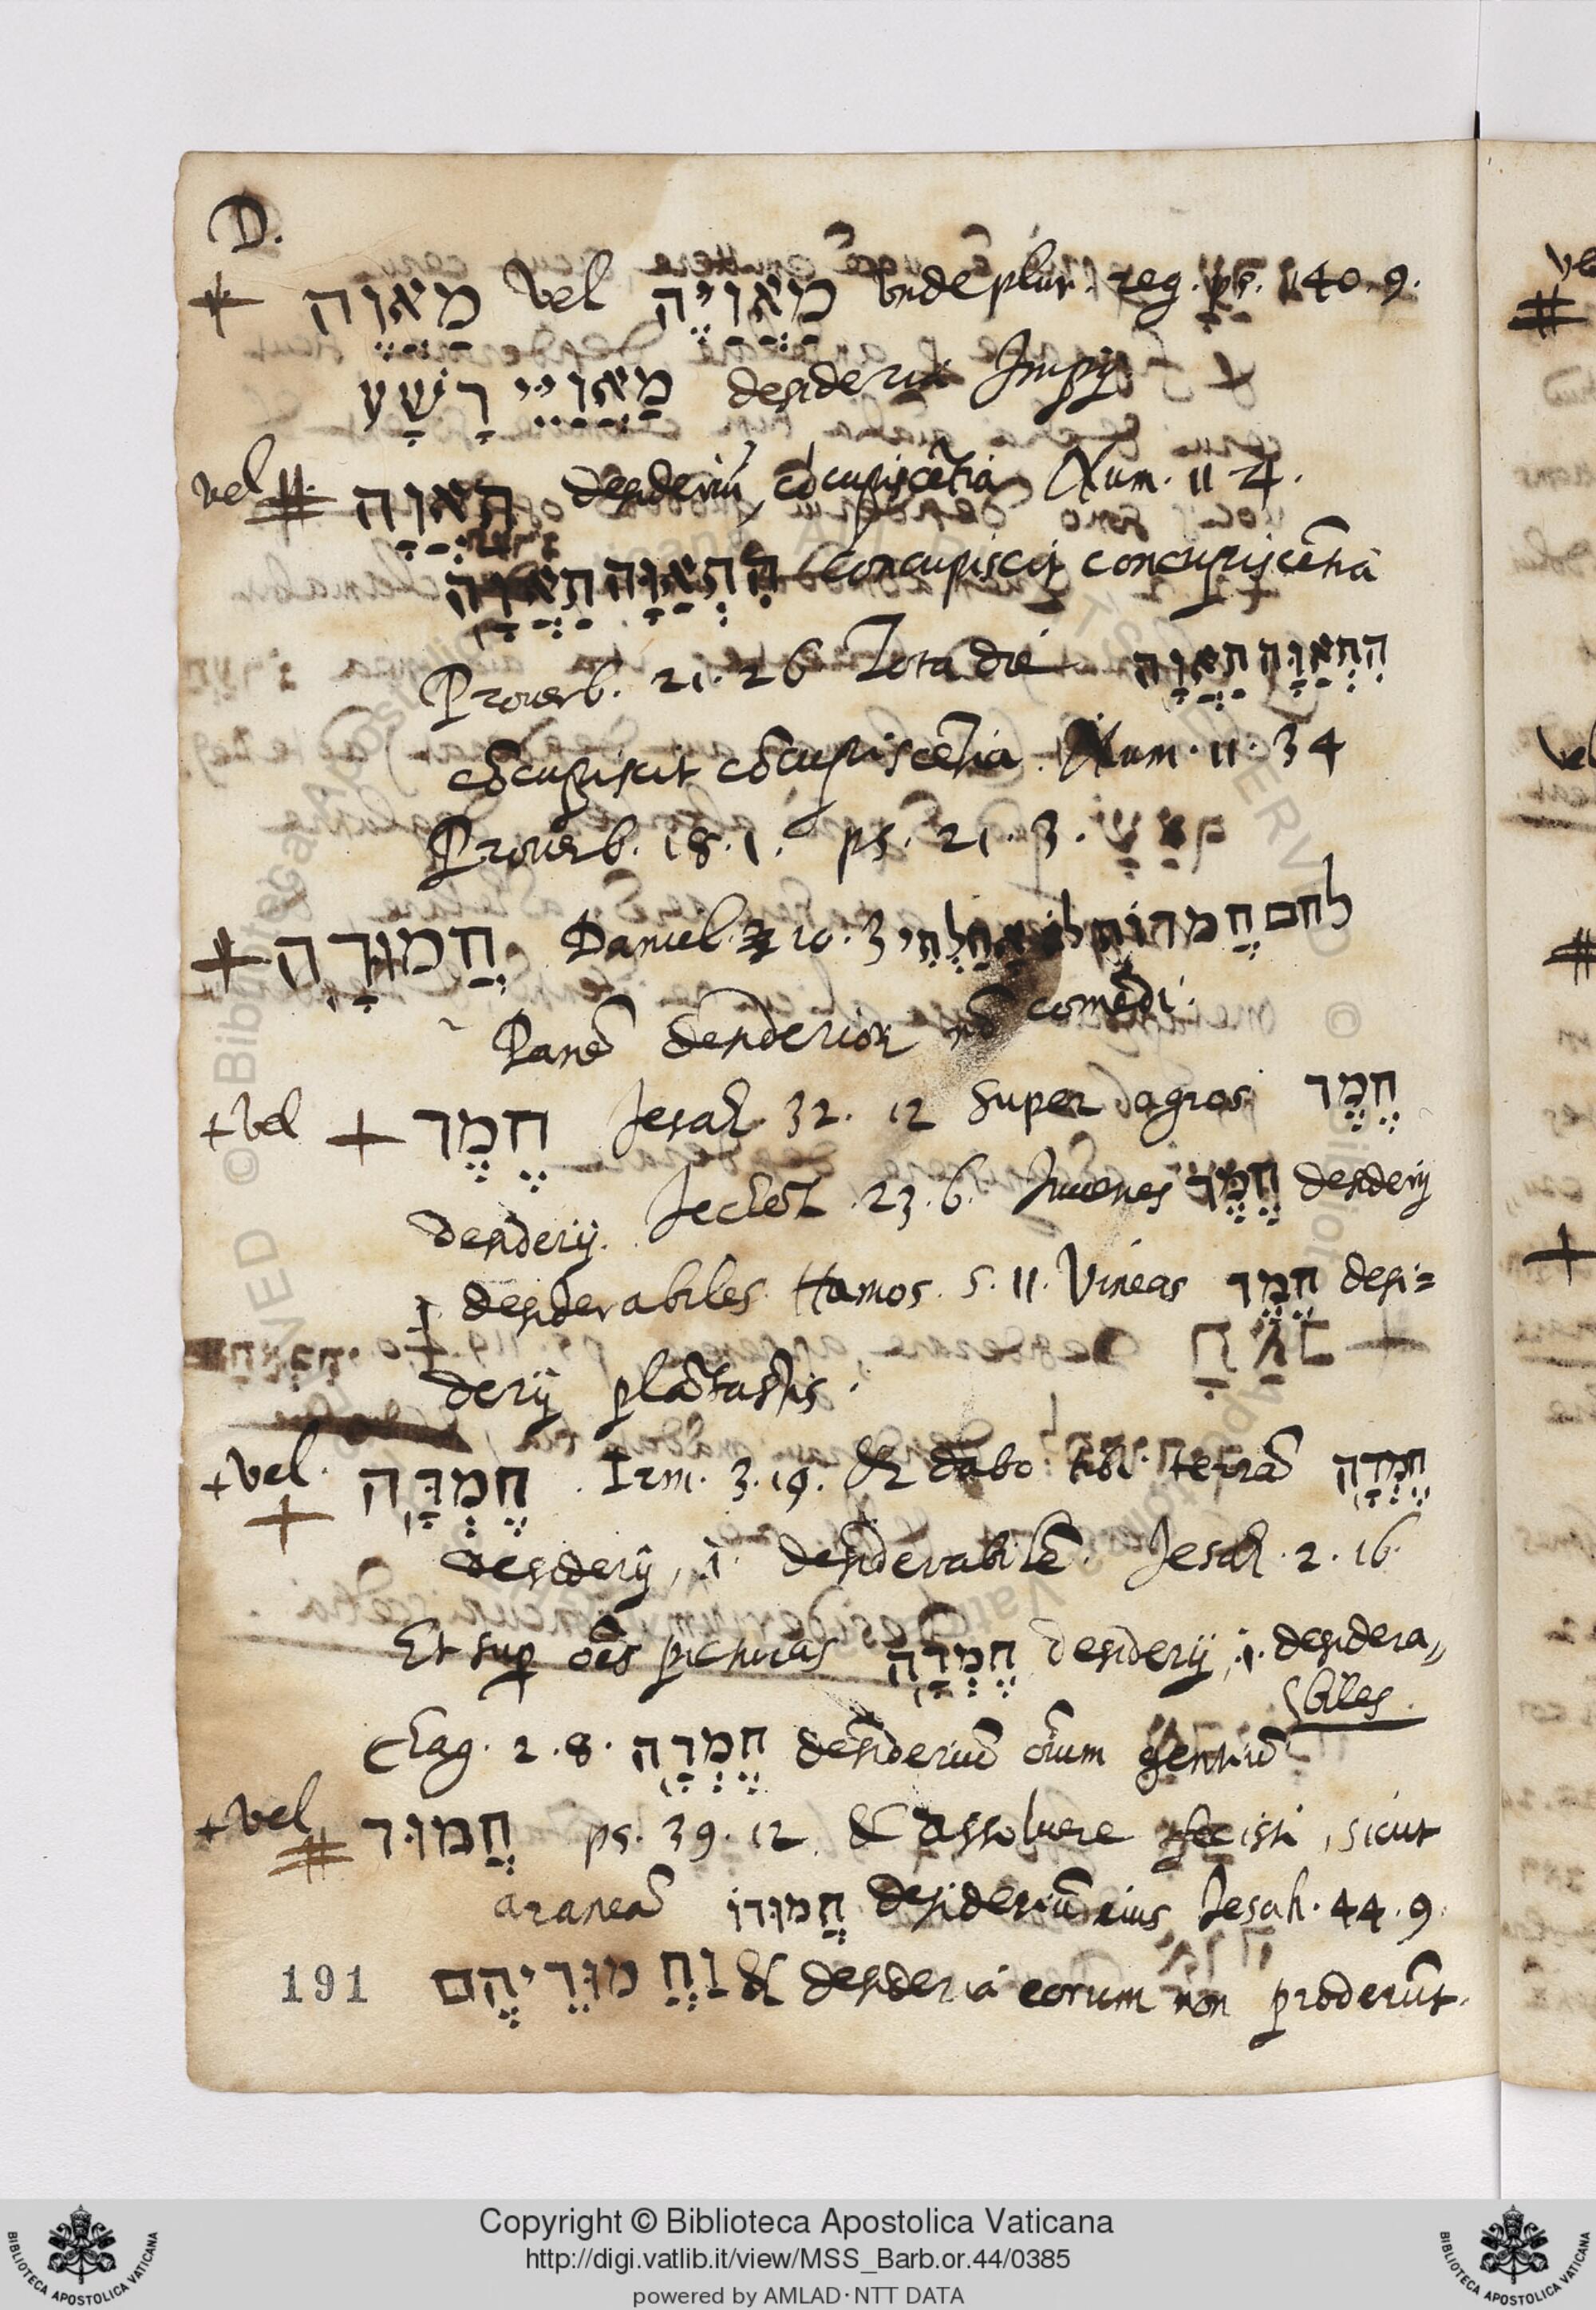 D.
מַאֲוֶה vel מַאֲוַיֶה unde plur. reg. ps. 140. 9.
מַאֲוַיֵי רָשָׁע desideria Impij
vel תַּאֲוָה desideriũ, cõcupiscẽtia Num. 11 4.
הִתְאַוָּה תַּאֲוָה concupiscit concupiscẽtiã
Proverb. 21. 26 Tota die הִתְאַוָּה תַאֲוָה
cõcupiscit cõcupiscẽtia. Num. 11. 34
Proverb. 18. 1. ps. 21. 3.
חֲמוּדָה Daniel. 10. 3 לחם חֲמדוֹת לֹא אָכַלְתִּי
Panẽ desiderior nõ comẽdi.
+ vel + חֶמֶד Jesah. 32. 12 super agros חֶמֶד
desiderij. Jechez. 23. 6. Juvenes חֶמֶד desiderij
desiderabiles Hamos. 5. 11. Vineas חֶמֶד desi=
derij plãtastis.
+ vel. חֶמְדָּה. Irm. 3. 19. & dabo tibi terrã חֶמְדָּה
desiderij, .i. desiderabilẽ. Jesah. 2. 16.
Et sup oẽs picturas חֶמְדָּה desiderij, .i. desidera„
biles.
Chag. 2. 8. חֶמְדָּה desideriũ oĩum gentiũ
+ vel חֲמוּד ps. 39. 12. & dissolvere fecisti, sicut
araneã חֲמוּדוֹ desideriũ eius Jesah. 44. 9.
וַחֲמוּדֵיהֶם & desideria eorum non proderũt.
191
Copyright © Biblioteca Apostolica Vaticana
http://digi.vatlib.it/view/MSS_Barb.or.44/0385
powered by AMLAD·NTT DATA
BIBLIOTECA APOSTOLICA VATICANA
BIBLIOTECA APOSTOLICA VATICANA